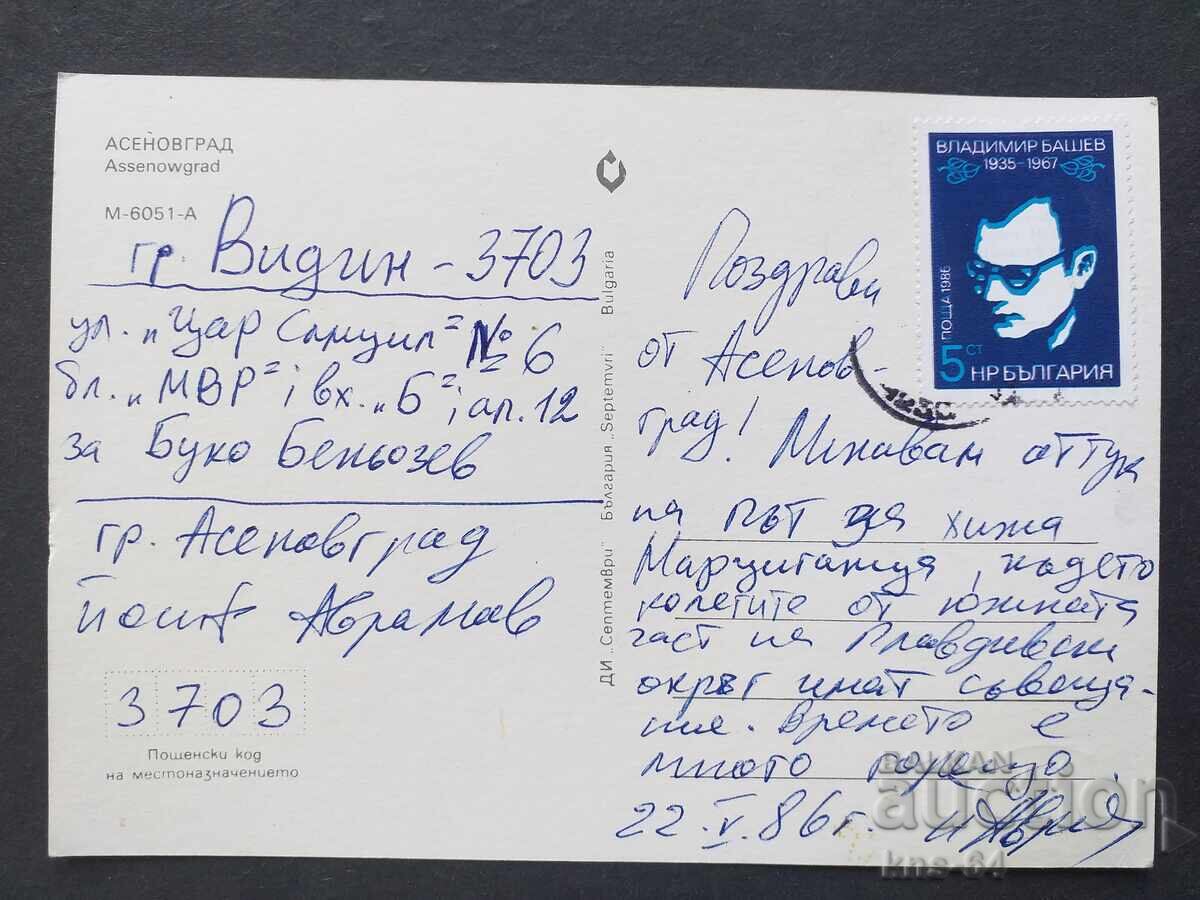 АСЕНОВГРАД
Assenowgrad
М-6051-А
гр. Видин - 3703
ул. „Цар Самуил" № 6
бл. „МВР"; вх. „Б"; ап. 12
за Буко Беньозев
гр. Асеновград
Йосиф Аврамов
3703
Пощенски код
на местоназначението
ДИ „Септември" България „Septemvri" Bulgaria
ВЛАДИМИР БАШЕВ
1935-1967
ПОЩА 1986
5 СТ
НР БЪЛГАРИЯ
Поздрави
от Асенов-
град! Минавам оттук
на път за хижа
Марциганица, където
колегите от южната
част на Пловдивски
окръг имат съвеща-
ние. Времето е
много горещо
22.V.86 г.
BALKAN
auction
kns-64